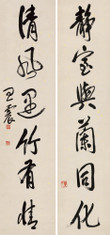 靜室與蘭同化
清風選竹有情
王震